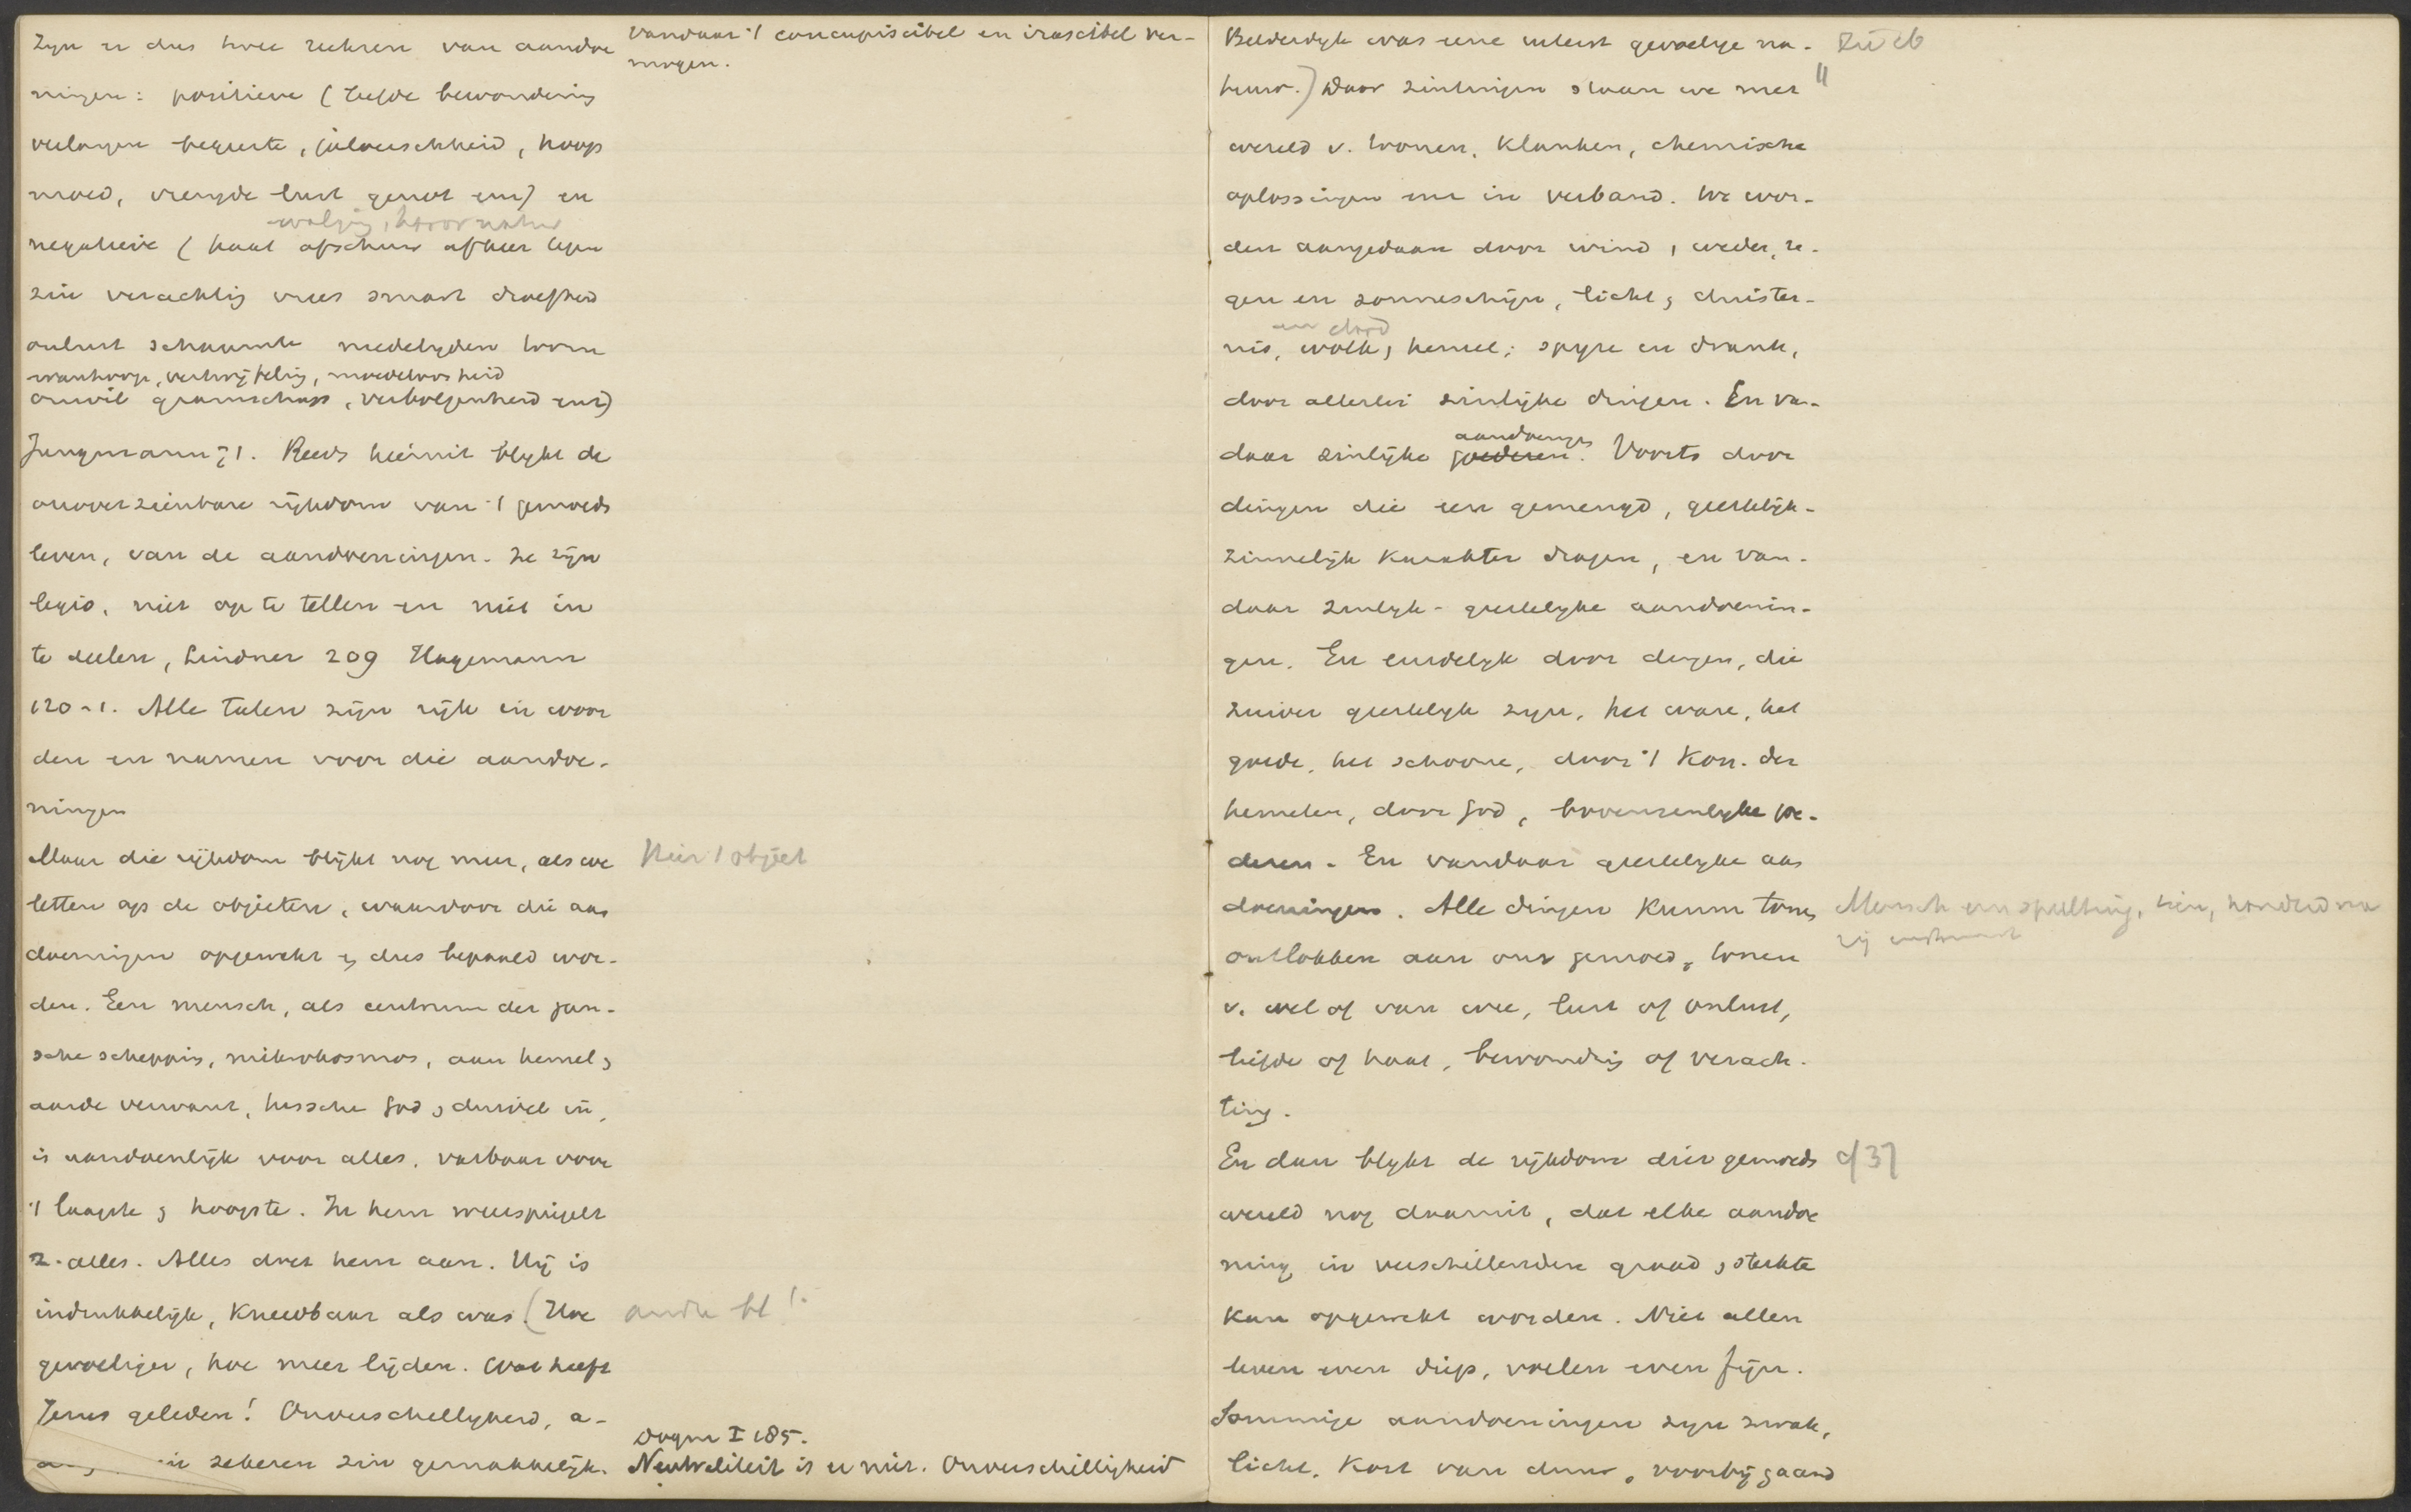 zyn er dus twee reeksen van aandoe
ningen: positieve (liefde bewondering
verlangen begeerte, jaloerschheid, hoop
moed, vreugde lust genot enz) en
walging,
negatieve (haat afschuw afkeer tegen
zin verachting vrees smart droefheid
onlust schaamte medelyden toorn
wanhoop, vertwijfeling, moedeloosheid
onwil gramschap, verbolgenheid enz)
Jungmann 71. Reeds hieruit blykt de
onoverzienbare rijkdom van 't gemoeds
leven, van de aandoeningen. Ze zijn
legio, niet op te tellen en niet in
te deelen, Lindner 209 Hagemann
120-1. Alle talen zijn rijk in woor
den en namen voor die aandoe-
ningen
Maar die rijkdom blijkt nog meer, als we
letten op de objecten, waardoor die aan
doeningen opgewekt & dus bepaald wor-
den. Een mensch, als centrum der gan-
sche schepping, mikrokosmos, aan hemel &
aarde verwant, tusschen God & duivel in,
is aandoenlijk voor alles, vatbaar voor
't laagste & hoogste. In hem weerspiegelt
z. alles. Alles doet hem aan. Hij is
indrukkelijk, kneedbaar als was (Hoe
gevoeliger, hoe meer lijden. Wat heeft
Jezus geleden! Onverschelligheid, a-
in zekeren zin gemakkelijk.
vandaar 't concupiscibel en irascibel ver-
mogen.
Hier 't object
andre bl!
Dogm I 185.
Neutraliteit is er niet. Onverschilligheid
Bilderdyk was eene uiterst gevoelige na-
tuur.) Door zintuigen staan we met
wereld v. tonen, klanken, chemische
oplossingen enz in verband. We wor-
den aangedaan door wind, weder, re-
gen en zonneschijn, licht & duister-
en
nis, wolk, hemel; spyze en drank,
door allerlei zinlijke dingen. En van-
aandoeninge
daar zinlijke goederen. Voorts door
dingen die een gemengd, geestelijk-
zinnelijk karakter dragen, en van-
daar zinlyk-geestelyke aandoenin-
gen. En eindelyk door dingen, die
zuiver geestelyk zyn, het ware, het
goede, het schoone, door 't Kon. der
hemelen, door God, bovenzinlyke goe-
deren. En vandaar geestelyke aan
doeningen. Alle dingen kunnen tonen
ontlokken aan ons gemoed, tonen
v. wel of van wee, lust of onlust,
liefde of haat, bewondring of verach-
ting.
En dan blykt de rijkdom dier gemoeds
wereld nog daaruit, dat elke aandoe
ning in verschillenden graad & sterkte
kan opgewekt worden. Niet allen
leven even diep, voelen even fijn.
Sommige aandoeningen zyn zwak,
licht, kort van duur, voorbijgaand
"
Mensch een speeltuig,
cf 37